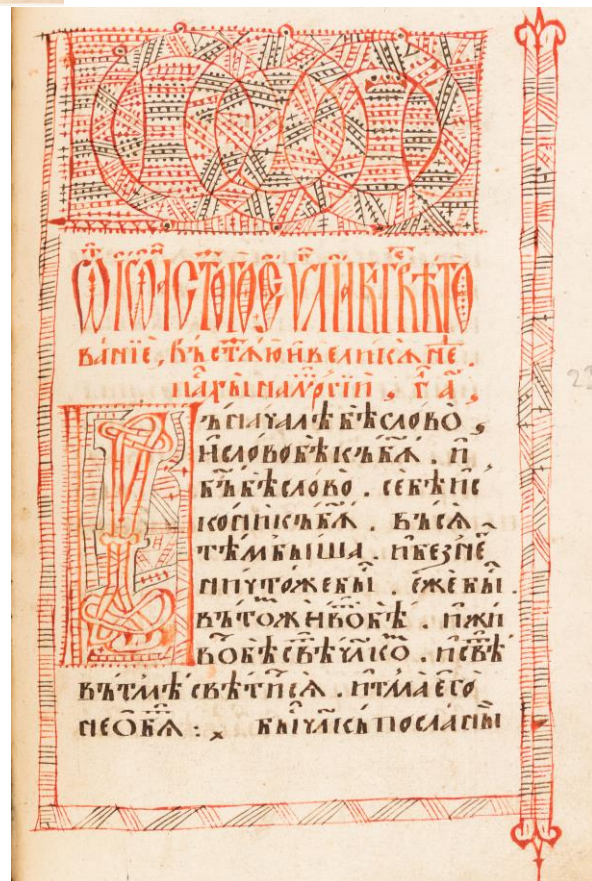 ѿ іѡⷩ҇а ст҃го еѵⷢ҇лїа бл҃говѣсто
ванїе, въ ст҃ꙋю и великꙋю неⷣ.
пасхы на лиⷮргїи, гл҃а,
Въ началѣ бѣ слово,
и слово бѣ къ бг҃ꙋ. и
бг҃ъ бѣ слово. се бѣ ис
кони къ бг҃ꙋ. въсѧ
тѣмъ быша. и безъ не
ничтоже быⷭ҇. еже быⷭ҇.
въ томъ живѡⷮ бѣ. и жи
вѡⷮ бѣ свѣⷮ чл҃кѡⷨ. и свѣⷮ
въ тмѣ свѣтитсѧ. и тма его
не ѡбѧⷮ. быⷭ҇ чл҃къ посланъ